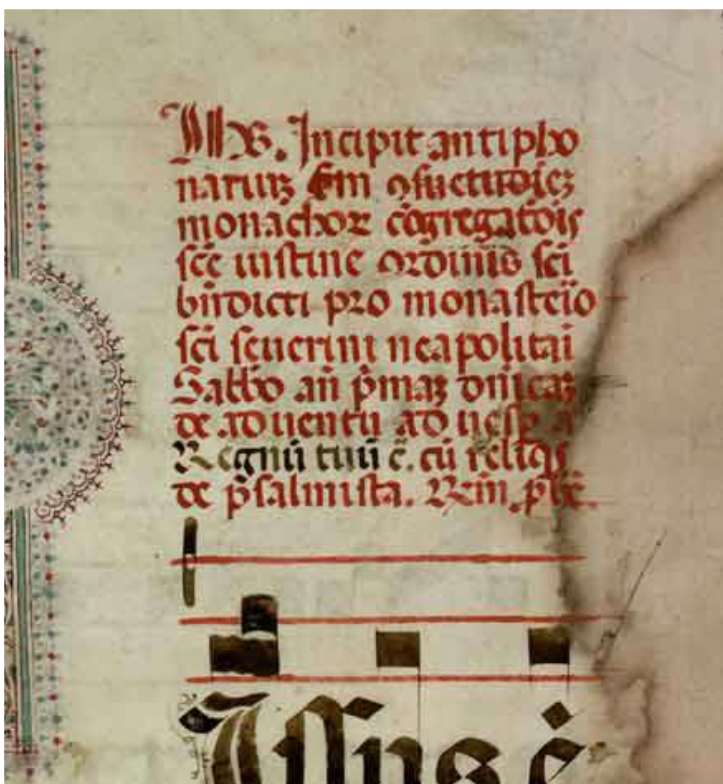 IHS. Incipit antipho
nariuꝫ ẜm ꝯsuetudīeꝫ
monachoꝝ cōgregatōis
scē iustine ordinis sci
bn̄dicti pro monasteīo
sci seuerini neapolitai
Sabb̄o an̄ pͥmaꝫ dn̄icaꝫ
de aduentu ad uesp̄
Regnū tuū ē. cū reliqs
de psalmista. plr̄.
issus ē